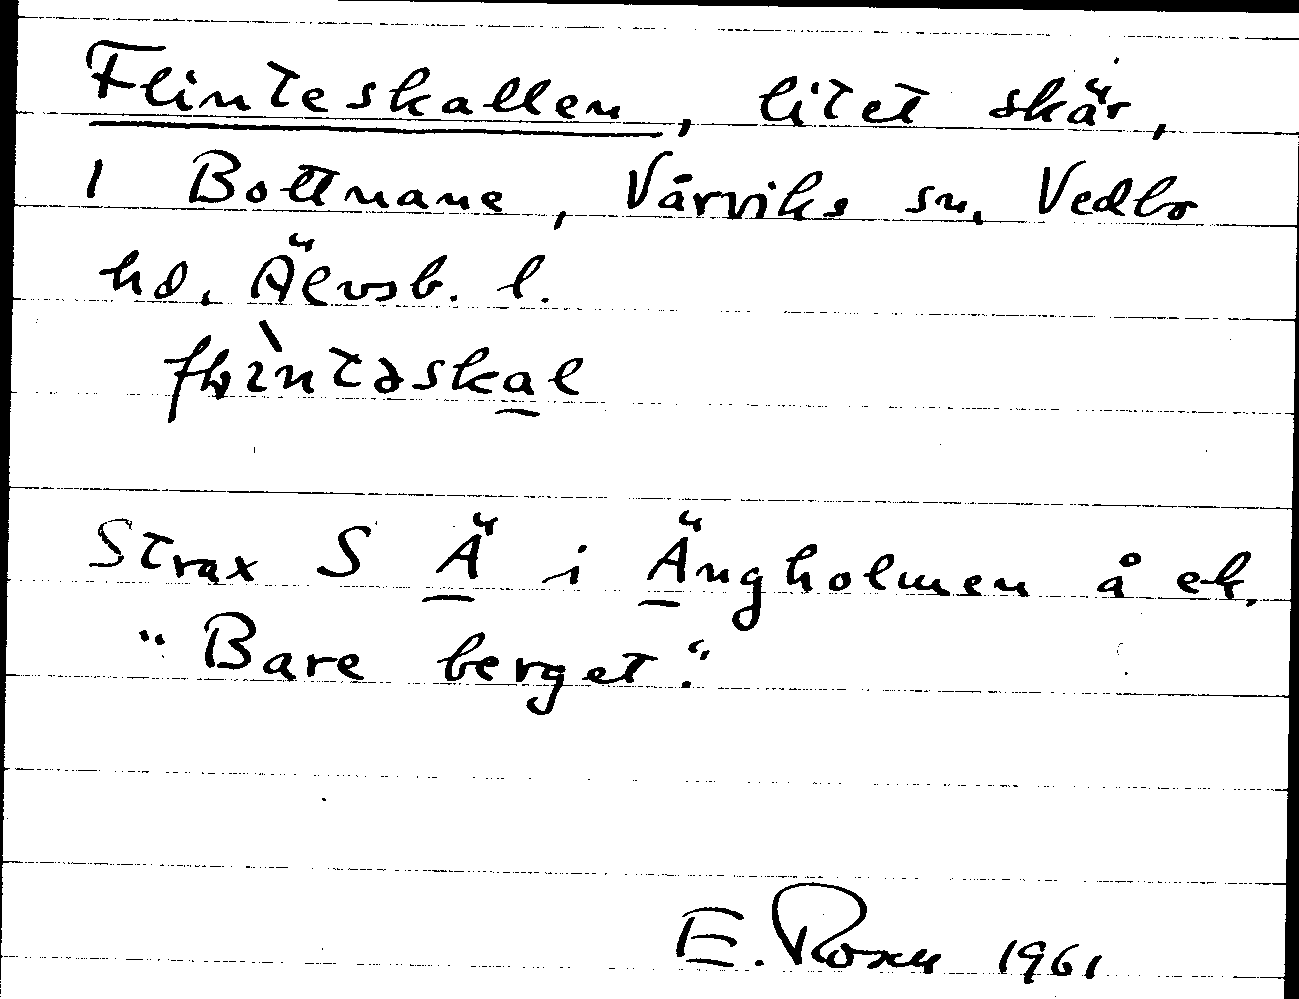 Flinteskallen, litet skär,
i Bottnane, Vårviks sn. Vedbo
hd. Älvsb. l.
Strax S Ä i Ängholmen å ek.
"Bare berget."
E. 1961